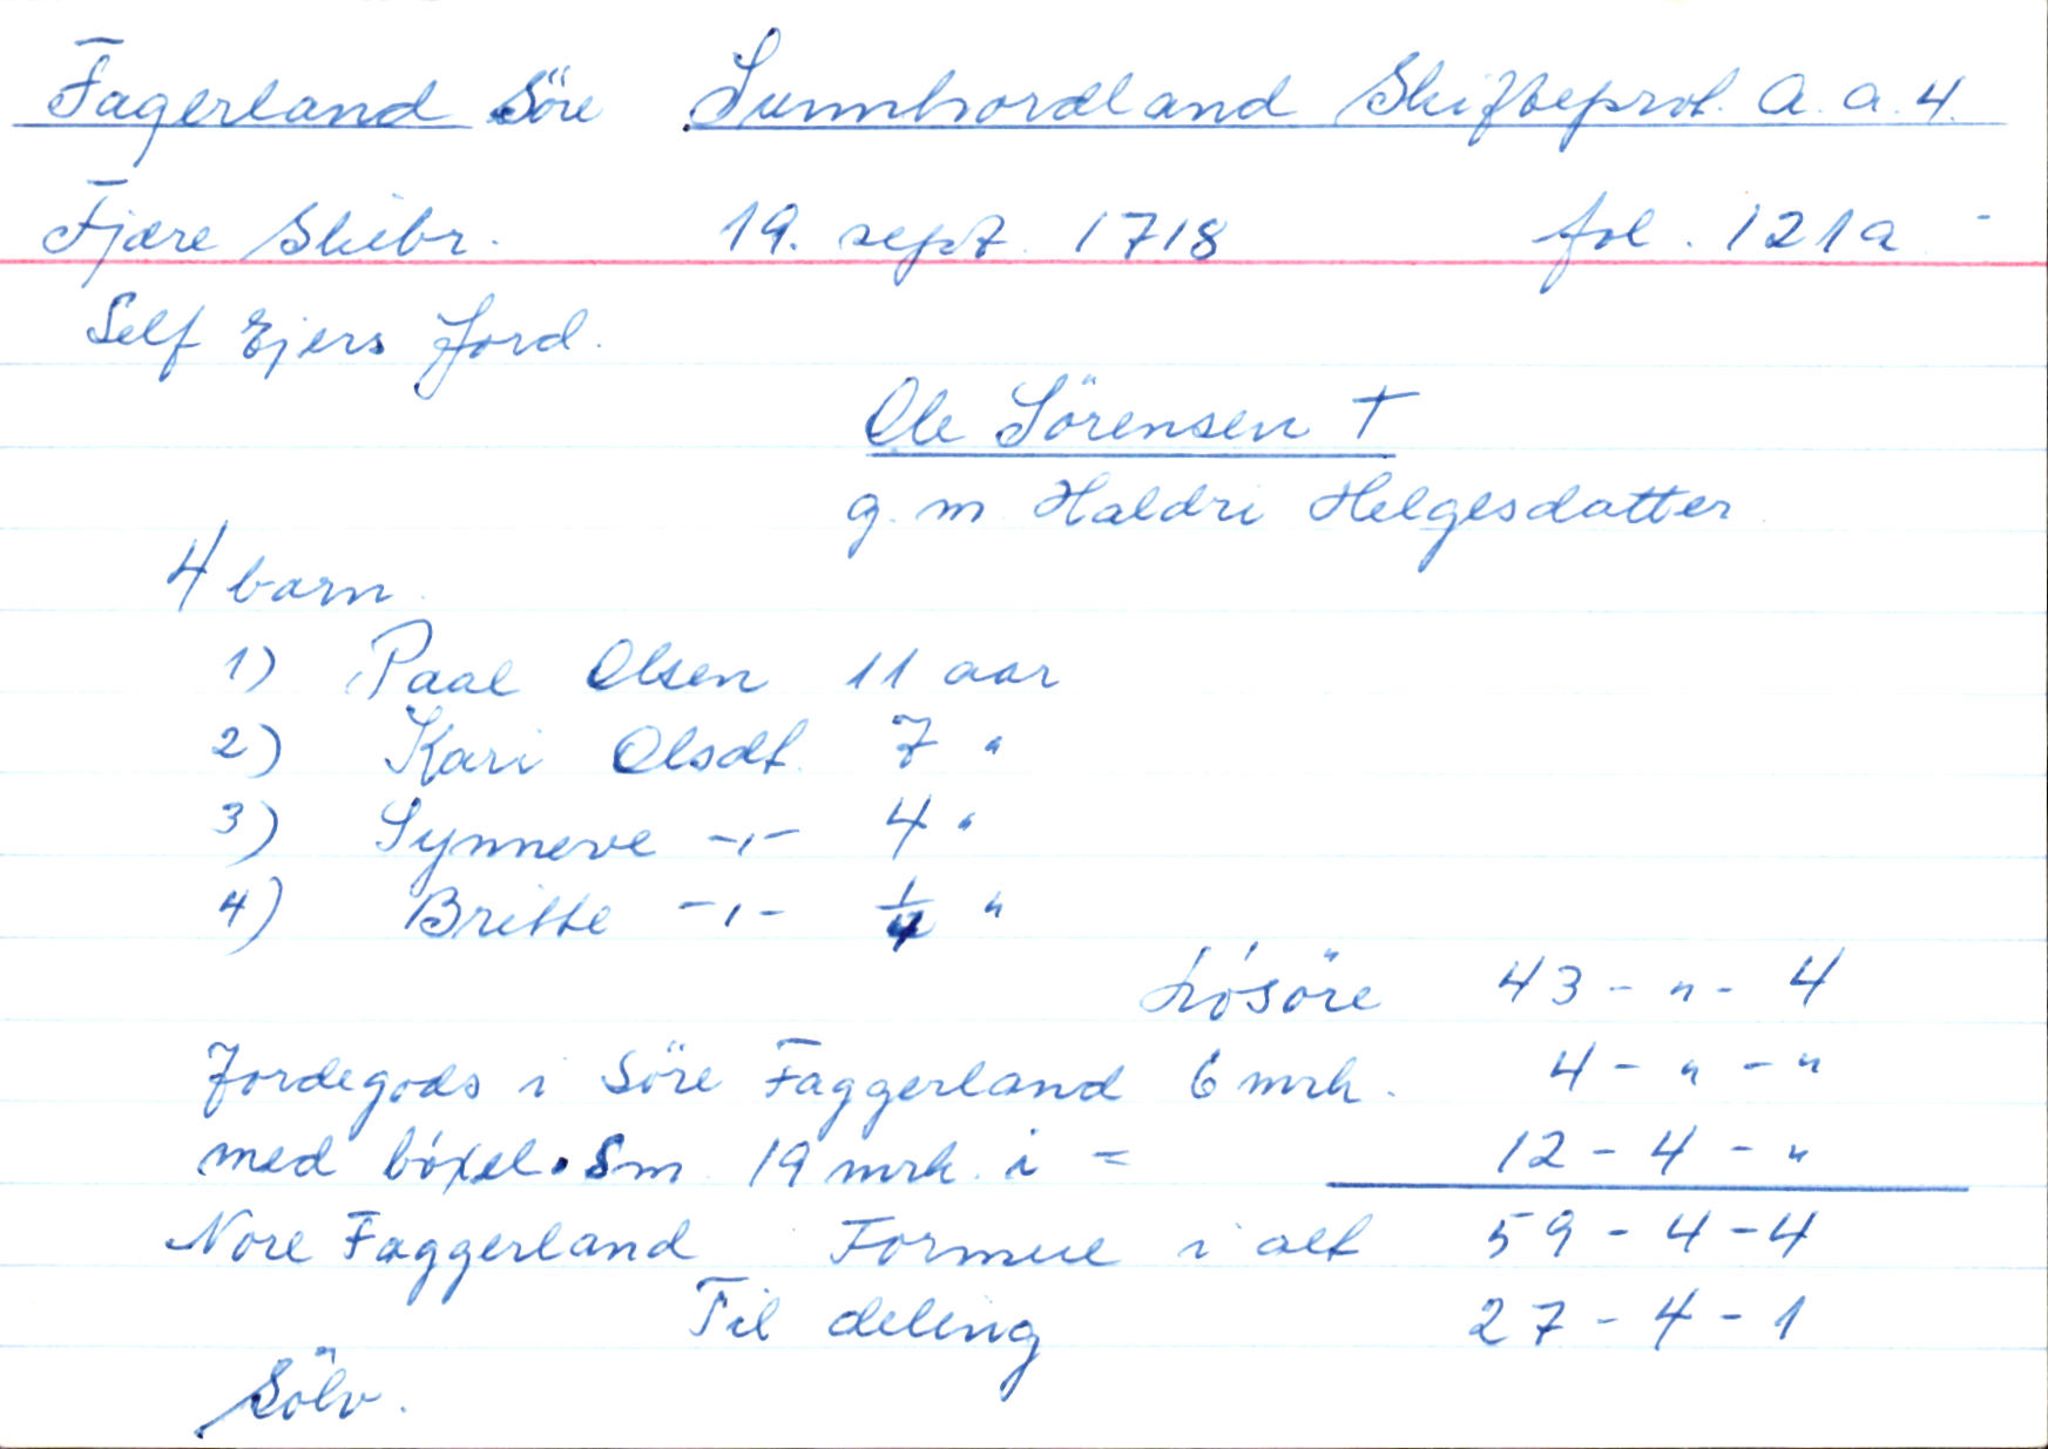 Fagerland Söre Sunnhordland Skifteprot. A.a.4.
Fjære Skibr. 19. sept. 1718 fol. 121a -
Self Ejers Jord.
Ole Sörensen †
g. m. Haldri Helgesdatter
4 barn.
1) Paal Olsen 11 aar
2) Kari Olsdt. 7 "
3) Synneve -,- 4 "
4) Britte -,- 1/4 "
Lösöre 43 - " - 4
Jordegods i Söre Faggerland 6 mrk. 4 - " - "
med böxel. Sm. 19 mrk. i = 12 - 4 - "
Nore Faggerland Formue i alt 59 - 4 - 4
Til deling 27 - 4 - 1
Sölv.